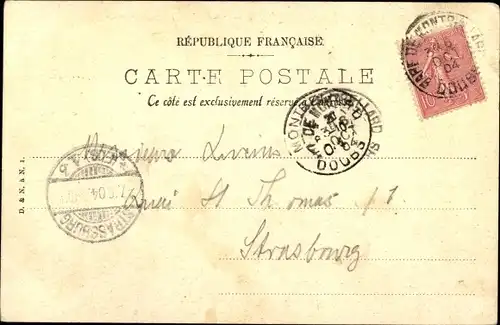 RÉPUBLIQUE FRANÇAISE
CARTE POSTALE
Ce côté est exclusivement réservé à l'adresse
GARE DE MONTBÉLIARD
04
DOUBS
MONTBÉLIARD
DOUBS
Monsieur
Quai St Thomas
Strasbourg
STRASSBURG
04
D. & N. & N. 1.
10